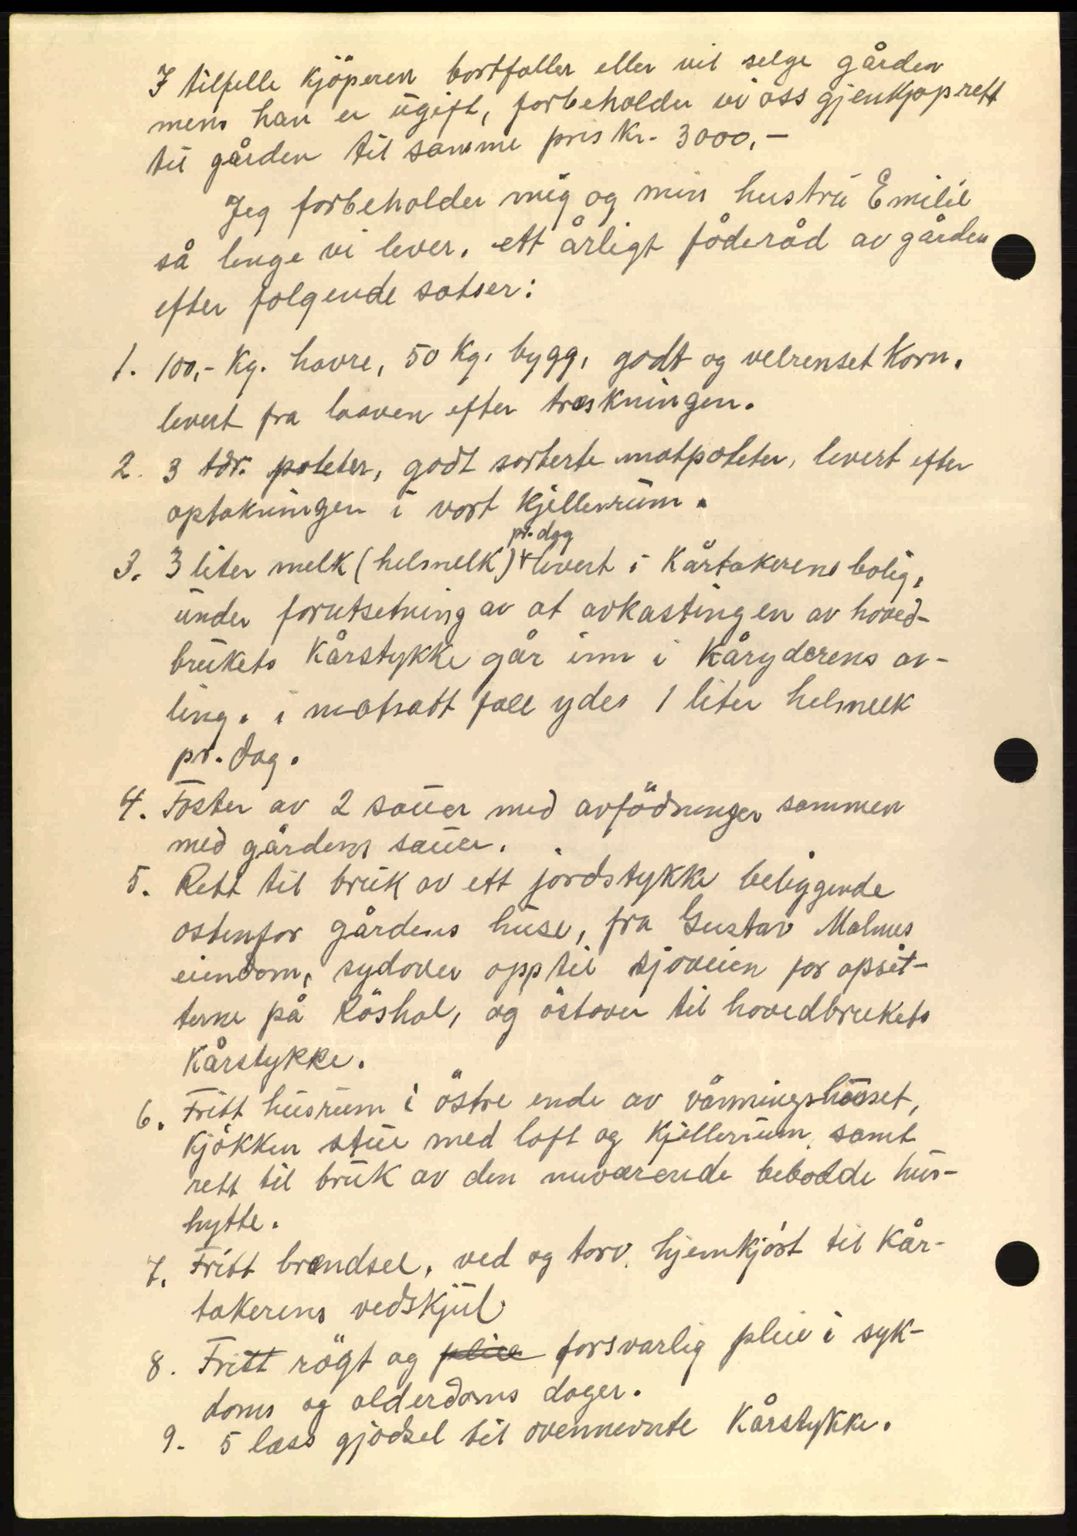 I tilfelle kjöperen bortfaller eller vil selge gården
mens han er ugift, forbeholder vi oss gjenkjøpsrett
til gården til samme pris kr. 3000,-
Jeg forbeholder mig og min hustru Emilie
så lenge vi lever, ett årligt föderåd av gården
efter følgende satser:
1. 100,- kg. havre, 50 kg. bygg, godt og velrenset korn.
levert fra laaven efter træskningen.
2. 3 tdr. poteter, godt sorterte matpoteter, levert efter
optakningen i vort kjellerrum.
3. 3 liter melk (helmelk) pr. dag levert i kårtakerens bolig,
under forutsetning av at avkastingen av hoved-
brukets kårstykke går inn i kåryderens av-
ling. i motsatt fall ydes 1 liter helmelk
pr. dag.
4. Foster av 2 sauer med avfödninger sammen
med gårdens sauer.
5. Rett til bruk av ett jordstykke beliggende
ostenfor gårdens huse, fra Gustav Malmes
eiendom, sydover opp til sjøveien for opsit-
terne på Röshol, og östover til hovedbrukets
kårstykke.
6. Fritt husrum i östre ende av våningshuset,
kjökken stue med loft og kjellerrum, samt
rett til bruk av den nuværende bebodde hus-
hytte.
7. Fritt brændsel, ved og torv, hjemkjört til kår-
takerens vedskjul
8. Fritt rögt og plice forsvarlig pleie i syk-
doms og alderdoms dager.
9. 5 læss gjødsel til ovennevnte kårstykke.